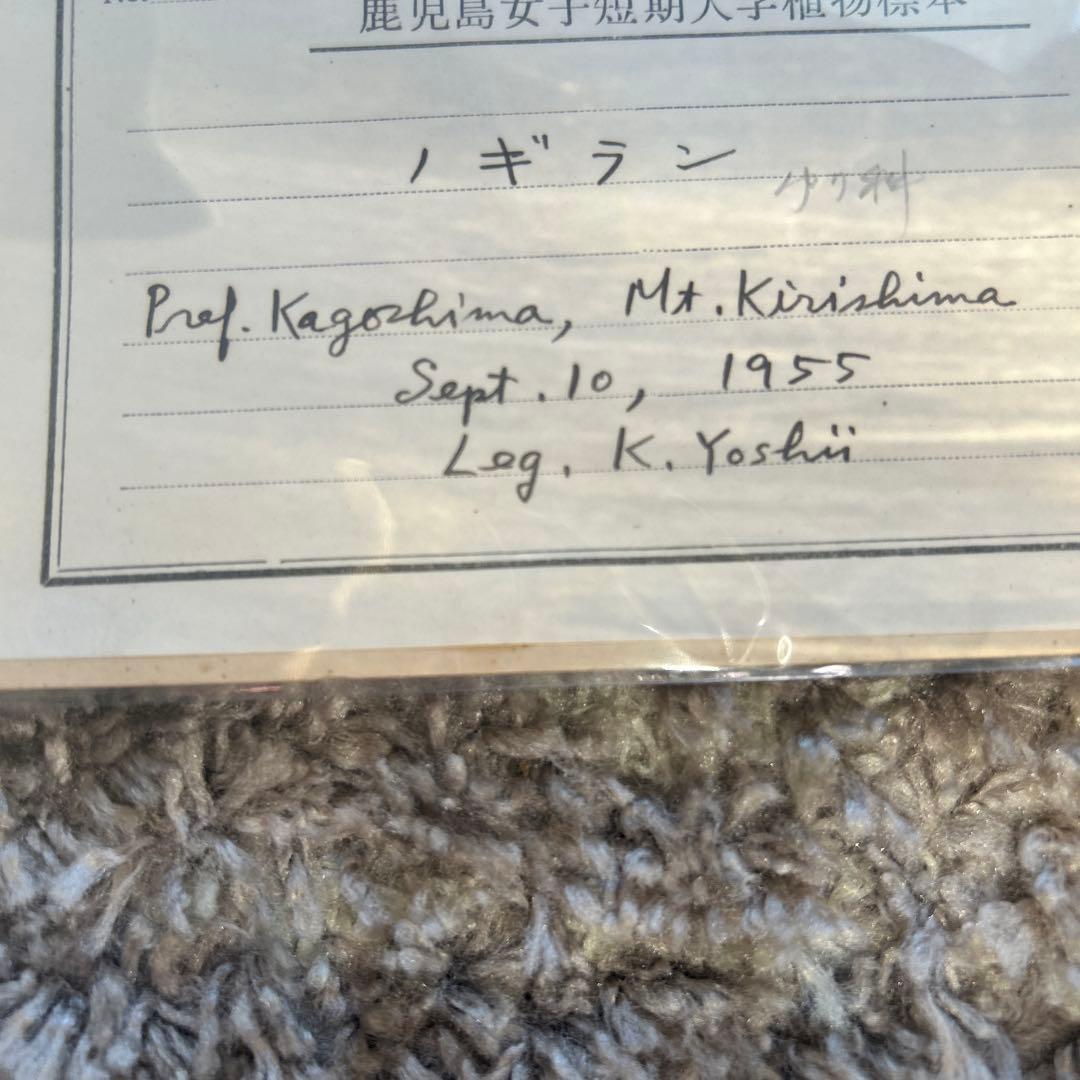 No.
鹿児島女子短期大学植物標本
ノギラン ゆり科
Pref. Kagoshima, Mt. Kirishima
Sept. 10, 1955
Leg. K. Yoshii